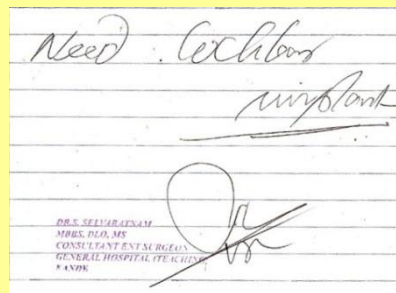 Need Cochlear
implant
DR.S. SELVARATNAM
MBBS, DLO, MS
CONSULTANT ENT SURGEON
GENERAL HOSPITAL (TEACHING
KANDY